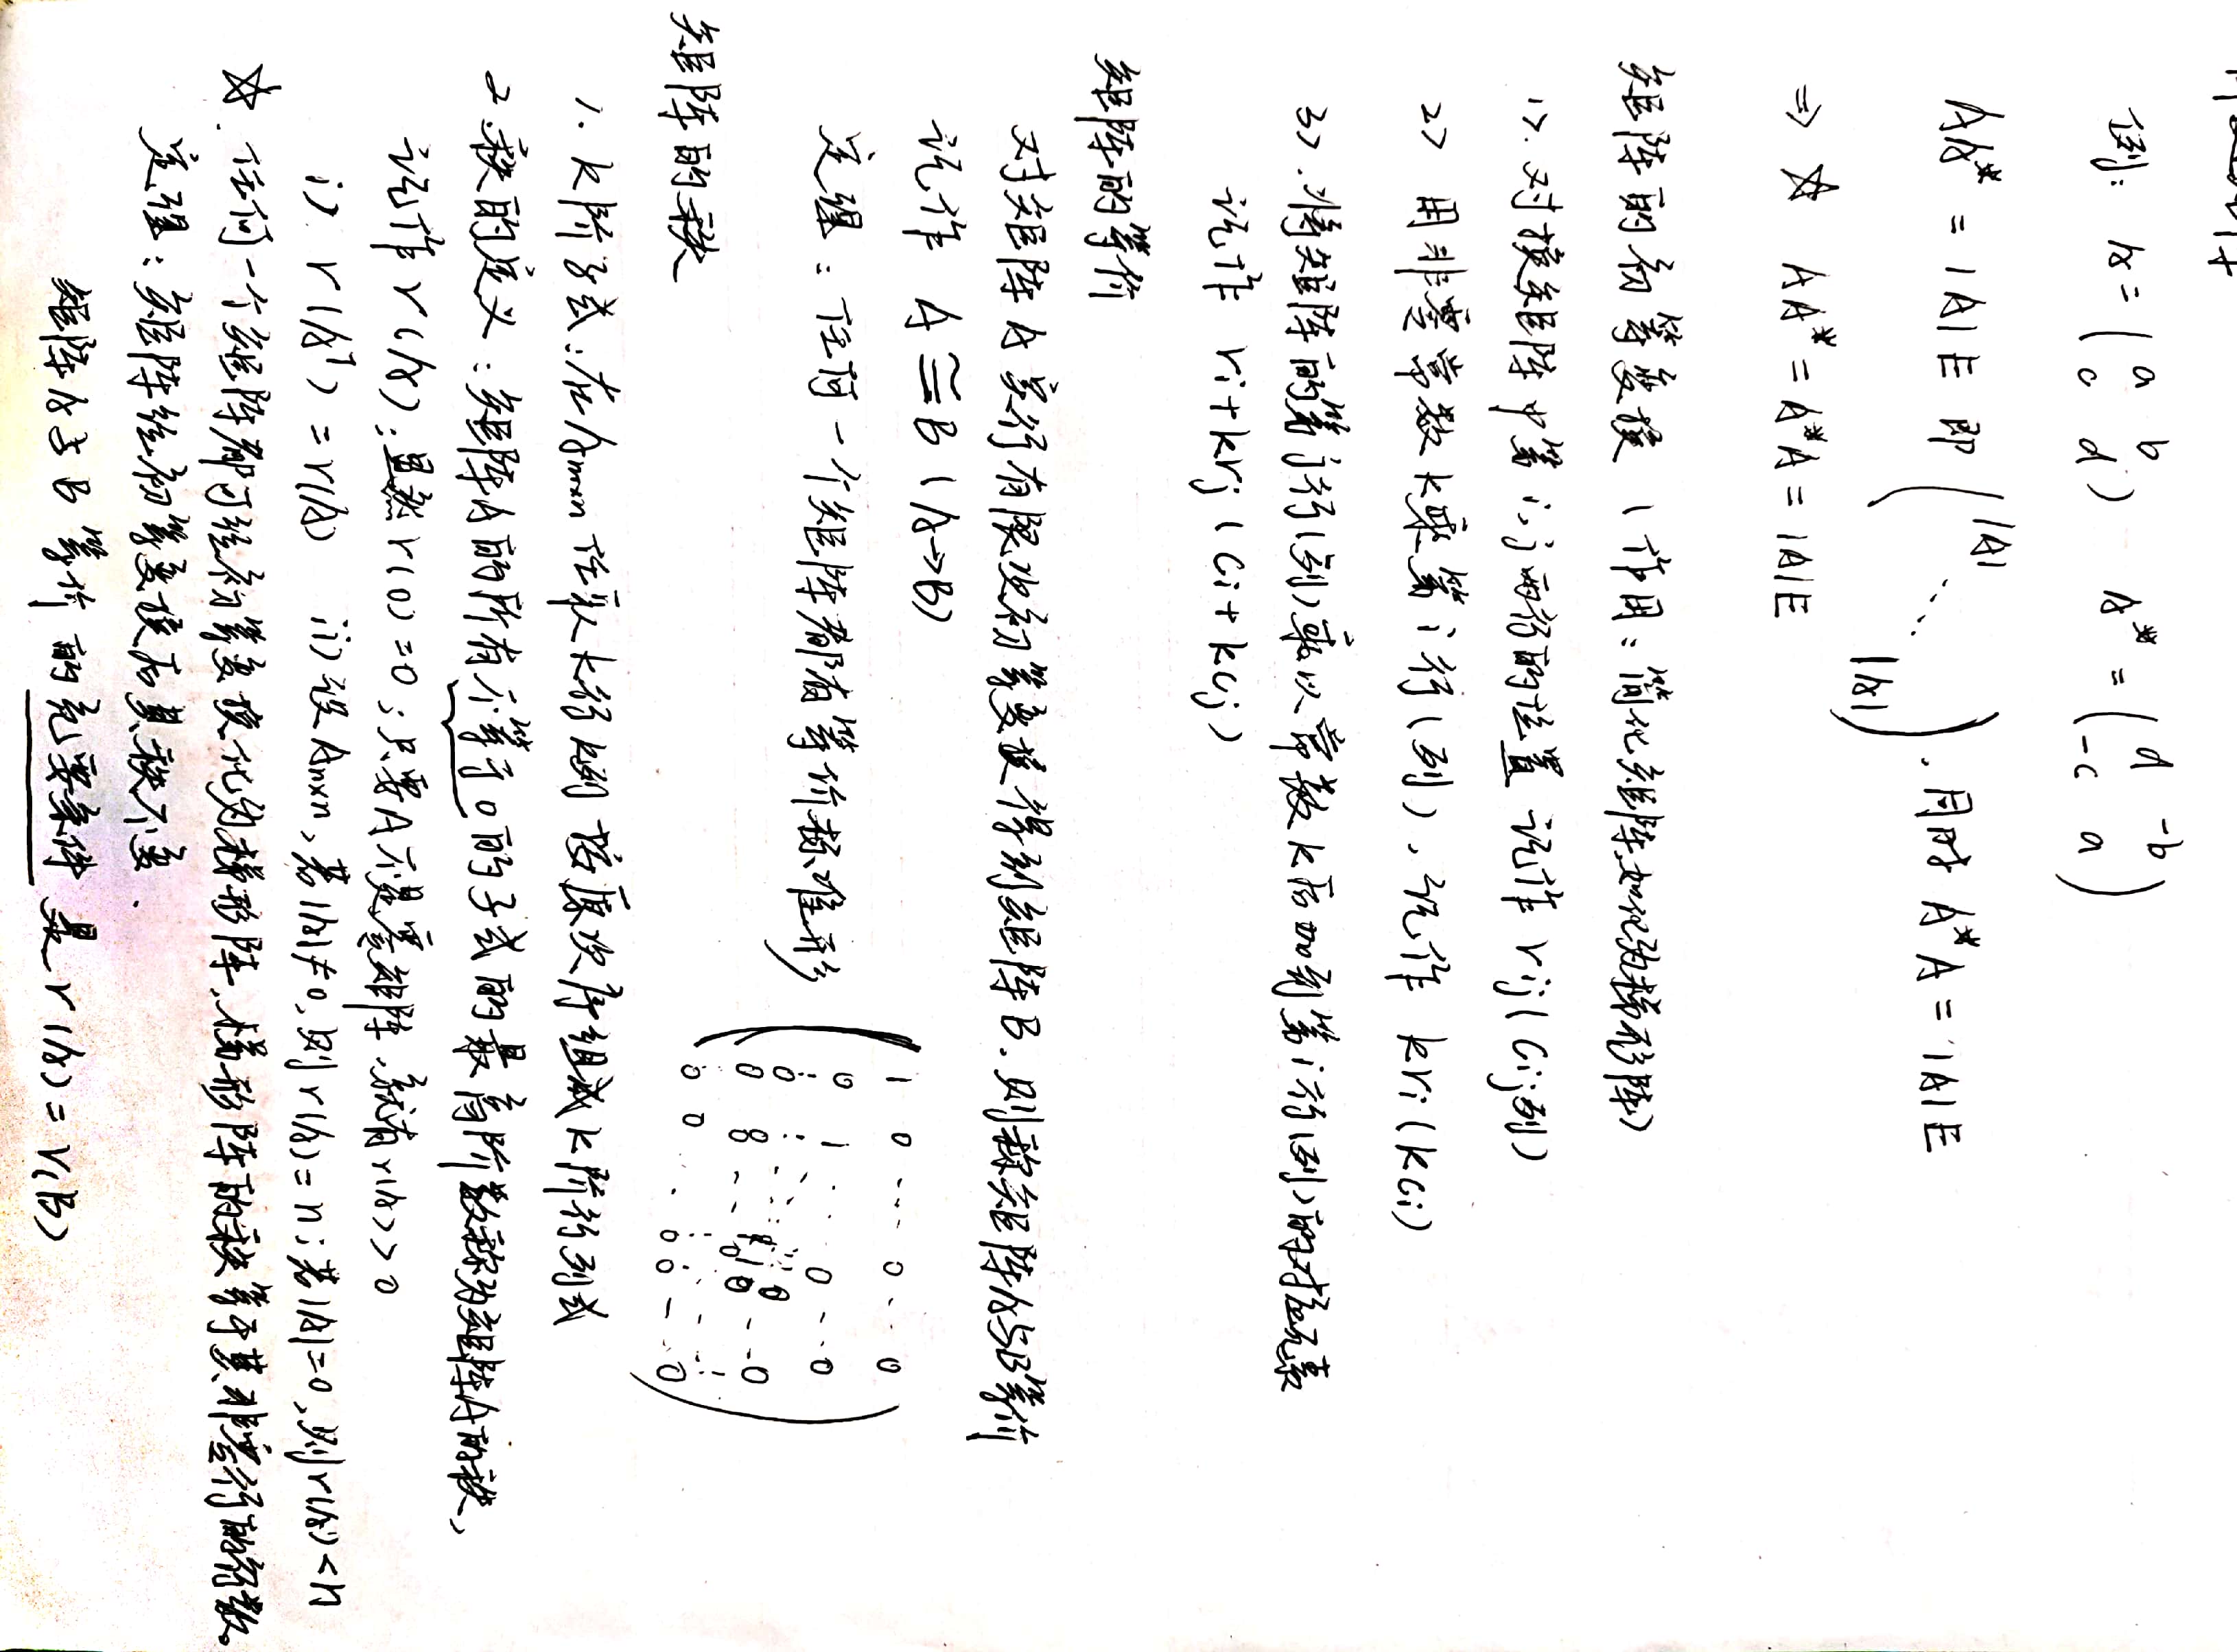 例: A = ( a b
c d ) A* = ( d -b
-c a )
AA* = |A|E 即 ( |A| ⋱ |A| ), 同时 A*A = |A|E
⇒ ☆ AA* = A*A = |A|E
矩阵的初等变换 (作用: 简化矩阵,如化为梯形阵)
1). 对换矩阵中第 i, j 两行的位置 记作 rij (Cij列)
2) 用非零常数 k 乘第 i 行(列), 记作 kri (kCi)
3). 将矩阵的第 j 行(列)乘以常数 k 后加到第 i 行(列)的对应元素
记作 ri+krj (Ci+kCj)
矩阵的等价
对矩阵 A 实行有限次初等变换得到矩阵 B. 则称矩阵A与B等价
记作 A ≅ B (A→B)
定理: 任何一个矩阵都有等价标准形
1 0 ... 0 ... 0
0 1 ... 0 ... 0
矩阵的秩
1. k 阶子式: 在 Am×n 任取 k 行 k 列 按原次序组成 k 阶行列式
2. 秩的定义: 矩阵A的所有不等于0的子式的最高阶数称为矩阵A的秩,
记作 r(A); 显然 r(0)=0; 只要A不是零矩阵,就有r(A)>0
i). r(Aᵀ) = r(A) ii) 设 An×n, 若|A|≠0, 则 r(A)=n; 若|A|=0, 则r(A)<n
☆. 任何一个矩阵都可经初等变换化为梯形阵, 梯形阵的秩等于其非零行的行数。
定理: 矩阵经初等变换后其秩不变.
矩阵 A 与 B 等价的充要条件是 r(A) = r(B)